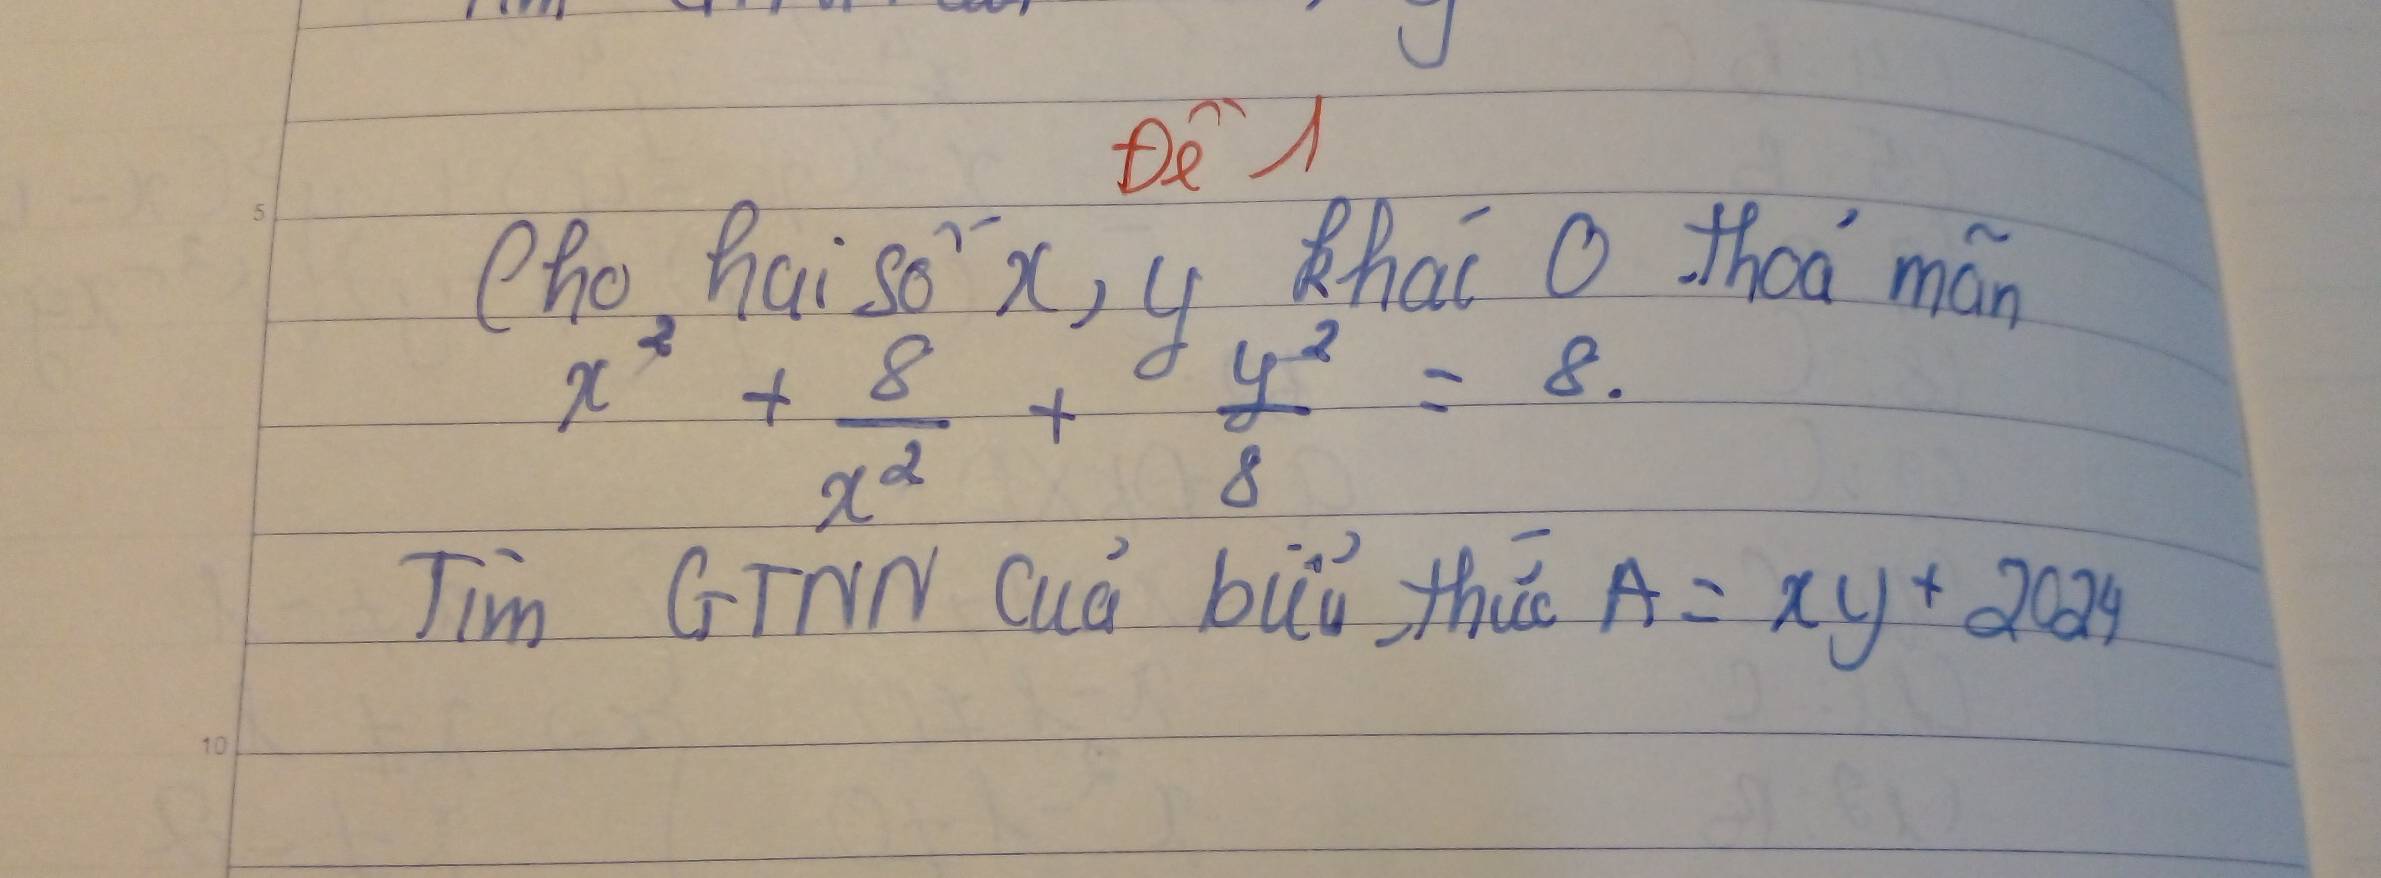 Đề 1
5
Cho hai số x, y khác 0 thoả mãn
x² + 8/x² + y²/8 = 8.
Tìm GTNN của biểu thức A = xy + 2024
10